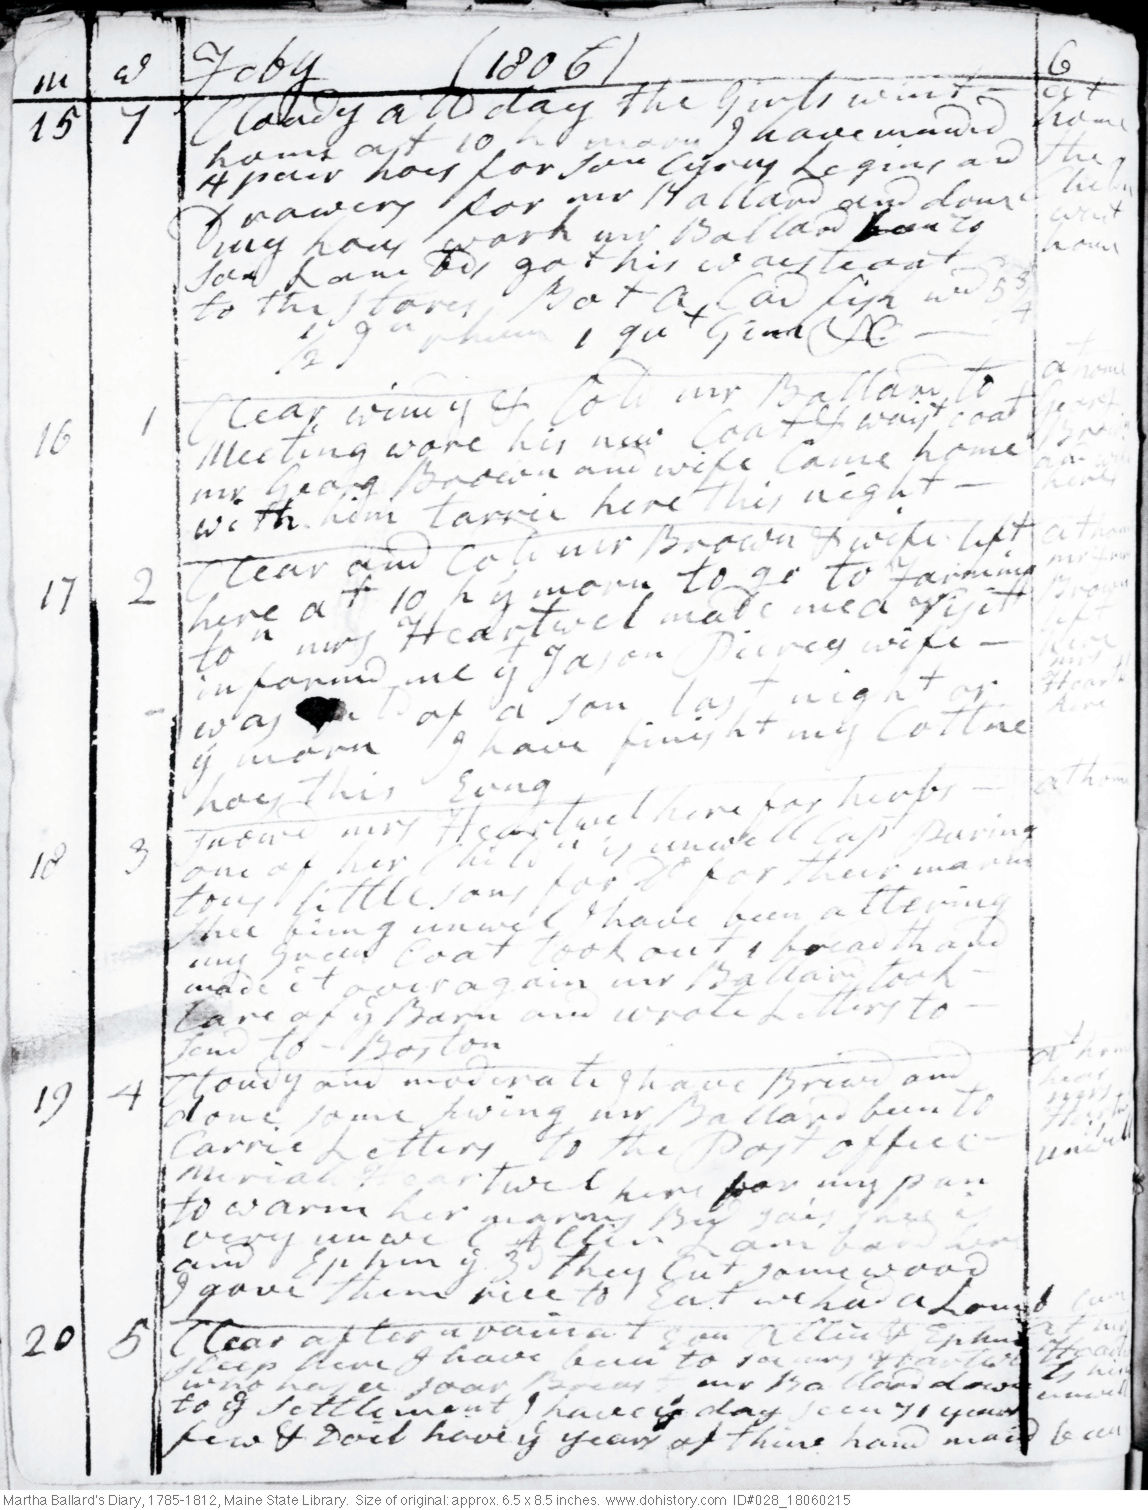 m w Feby (1806) 6
15 7 Cloudy all day the Girls went - at
home at 10 h morn I have mended home
4 pair hoes for son Cyrus Legins and the
Drawers for mr Ballard and done
my hous work mr Ballard been to went
son Lambds got his waistcoat home
to the stores Bot a Cod fish wd 5 3/4
1/2 g 1 qut Ginn &C -
16 1 Clear windy & Cold mr Ballard to at home
Meeting wore his new Coat & waist coat Georg
mr Georg Brown and wife Came home Brown
with him tarrie here this night - and wife here
17 2 Clear and Cold mr Brown & wife left at hom
here at 10 h y morn to go to Farming mr
ton mrs Heartwel made me a Visitt Brown
informd me yt Jason Peirces wife - left here
was of a son last night or mrs Heart
y morn I have finisht my Cottne here
hoes this Evng
18 3 Snowd mrs Heartwel here for herbs - at hom
one of her Childn is unwell Capt Puring
tons little sons for Do for their marm
shee being unwel I have been altering
my green Coat took out 1 breadth and
made it over again mr Ballard took -
Care of y Barn and wrote Letters to -
send to - Boston
19 4 Cloudy and moderate I have Brewd and at hom
done some sewing mr Ballard been to
Carrie Letters to the Post office -
Meriah Heartwel here for my pan unwell
to warm her marms Bed sais shee is
very unwel Allin Lambard here
and Ephm y 3d they Cut some wood
I gave them rice to Eat we had a Lound
20 5 Clear after a rain at Evn Allin & Ephm at mr
sleep here I have been to see mrs Heartwel Heart
who has a soar Breast mr Ballard down
to y Settlement I have y day seen 71 years unwell
few & Evil have y years of thine hand maid been
Martha Ballard's Diary, 1785-1812, Maine State Library. Size of original: approx. 6.5 x 8.5 inches. www.dohistory.com ID#028_18060215